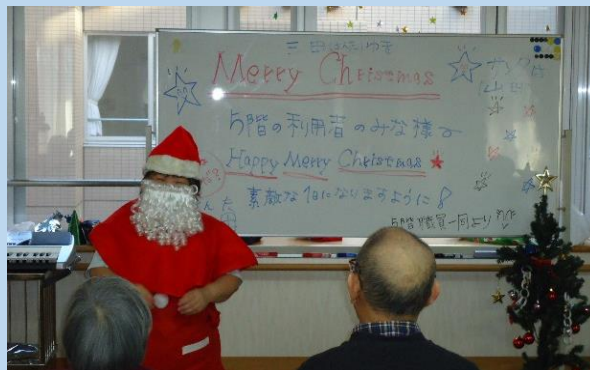 Merry Christmas
5階の利用者のみな様へ
Happy Merry Christmas
素敵な1日になりますように
5階職員一同より